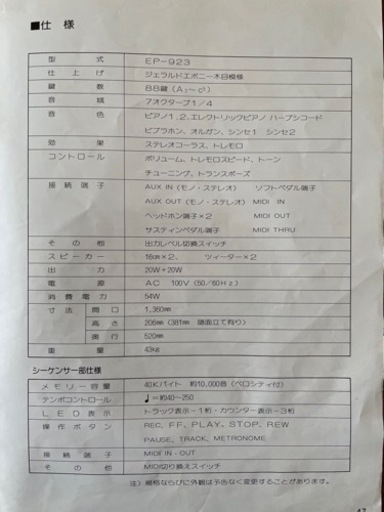 ■仕様
型式 EP-923
仕上げ ジェラルドエボニー木目模様
鍵数 88鍵(A₂~c⁵)
音域 7オクターブ1/4
音色 ピアノ1.2.エレクトリックピアノ ハープシコード
ビブラホン、オルガン、シンセ1 シンセ2
効果 ステレオコーラス、トレモロ
コントロール ボリューム、トレモロスピード、トーン
チューニング、トランスポーズ
接続端子 AUX IN(モノ・ステレオ) ソフトペダル端子
AUX OUT(モノ・ステレオ) MIDI IN
ヘッドホン端子×2 MIDI OUT
サスティンペダル端子 MIDI THRU
その他 出力レベル切換スイッチ
スピーカー 16cm×2、 ツィーター×2
出力 20W+20W
電源 AC 100V(50/60Hz)
消費電力 54W
寸法 間口 1,380mm
高さ 206mm(381mm 譜面立て有り)
奥行 520mm
重量 43kg
シーケンサー部仕様
メモリー容量 40Kバイト 約10,000音(ベロシティ付)
テンポコントロール ♩=約40~250
LED表示 トラック表示-1桁・カウンター表示-3桁
操作ボタン REC, FF, PLAY, STOP, REW
PAUSE, TRACK, METRONOME
接続端子 MIDI IN・OUT
その他 MIDI切り換えスイッチ
注)規格ならびに外観は予告なく変更することがあります。
47